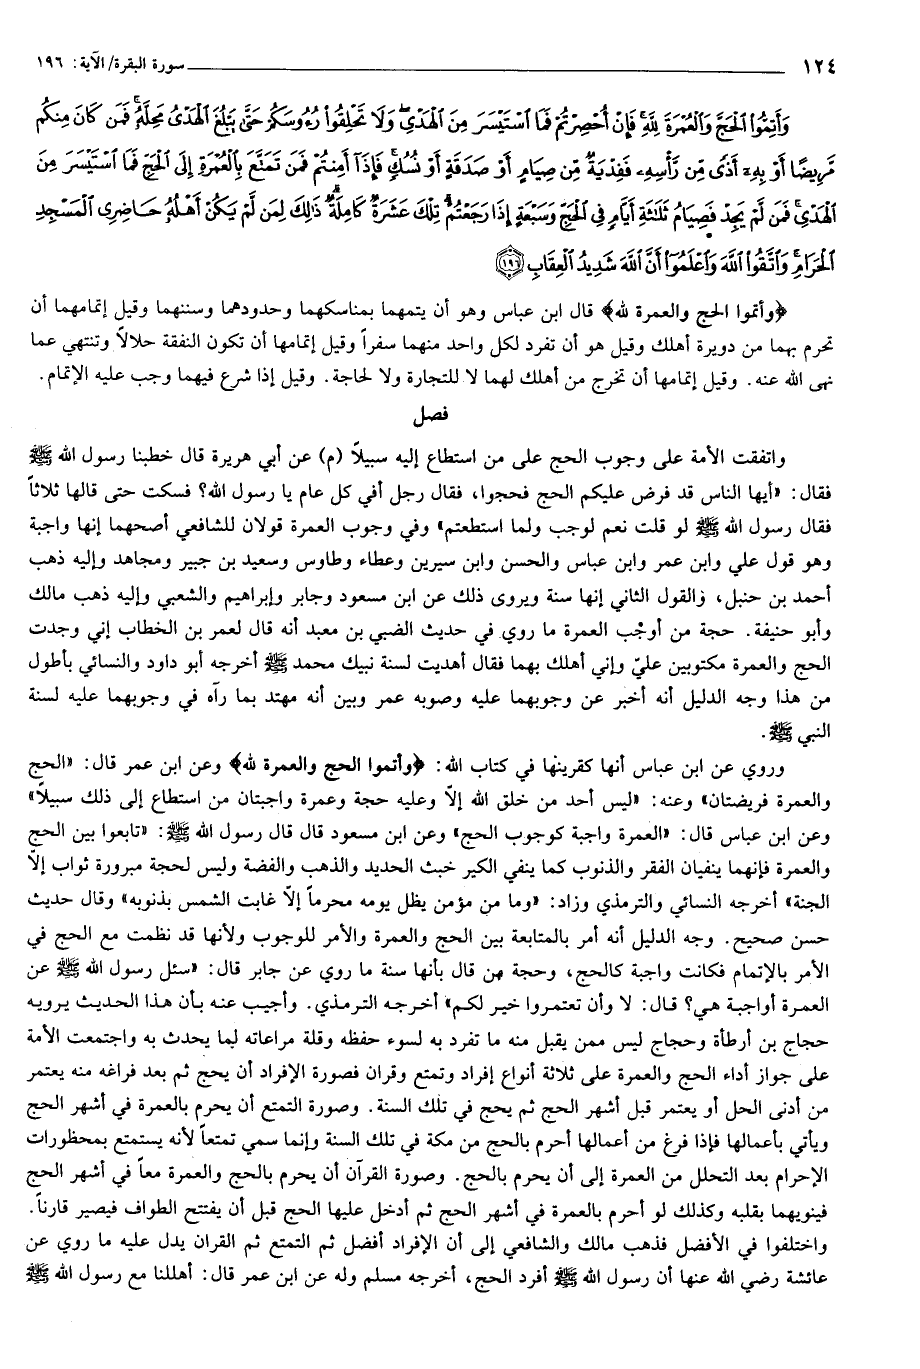 ١٢٤ سورة البقرة/ الآية: ١٩٦
وَأَتِمُّوا۟ ٱلْحَجَّ وَٱلْعُمْرَةَ لِلَّهِ ۚ فَإِنْ أُحْصِرْتُمْ فَمَا ٱسْتَيْسَرَ مِنَ ٱلْهَدْىِ ۖ وَلَا تَحْلِقُوا۟ رُءُوسَكُمْ حَتَّىٰ يَبْلُغَ ٱلْهَدْىُ مَحِلَّهُۥ ۚ فَمَن كَانَ مِنكُم
مَّرِيضًا أَوْ بِهِۦٓ أَذًى مِّن رَّأْسِهِۦ فَفِدْيَةٌ مِّن صِيَامٍ أَوْ صَدَقَةٍ أَوْ نُسُكٍ ۚ فَإِذَآ أَمِنتُمْ فَمَن تَمَتَّعَ بِٱلْعُمْرَةِ إِلَى ٱلْحَجِّ فَمَا ٱسْتَيْسَرَ مِنَ
ٱلْهَدْىِ ۚ فَمَن لَّمْ يَجِدْ فَصِيَامُ ثَلَـٰثَةِ أَيَّامٍ فِى ٱلْحَجِّ وَسَبْعَةٍ إِذَا رَجَعْتُمْ ۗ تِلْكَ عَشَرَةٌ كَامِلَةٌ ۗ ذَٰلِكَ لِمَن لَّمْ يَكُنْ أَهْلُهُۥ حَاضِرِى ٱلْمَسْجِدِ
ٱلْحَرَامِ ۚ وَٱتَّقُوا۟ ٱللَّهَ وَٱعْلَمُوٓا۟ أَنَّ ٱللَّهَ شَدِيدُ ٱلْعِقَابِ ﴿١٩٦﴾
﴿وأتموا الحج والعمرة لله﴾ قال ابن عباس وهو أن يتمهما بمناسكهما وحدودهما وسننهما وقيل إتمامهما أن
تحرم بهما من دويرة أهلك وقيل هو أن تفرد لكل واحد منهما سفراً وقيل إتمامها أن تكون النفقة حلالاً وتنتهي عما
نهى الله عنه. وقيل إتمامها أن تخرج من أهلك لهما لا للتجارة ولا لحاجة. وقيل إذا شرع فيهما وجب عليه الإتمام.
فصل
واتفقت الأمة على وجوب الحج على من استطاع إليه سبيلاً (م) عن أبي هريرة قال خطبنا رسول الله ﷺ
فقال: «أيها الناس قد فرض عليكم الحج فحجوا، فقال رجل أفي كل عام يا رسول الله؟ فسكت حتى قالها ثلاثاً
فقال رسول الله ﷺ لو قلت نعم لوجب ولما استطعتم» وفي وجوب العمرة قولان للشافعي أصحهما إنها واجبة
وهو قول علي وابن عمر وابن عباس والحسن وابن سيرين وعطاء وطاوس وسعيد بن جبير ومجاهد وإليه ذهب
أحمد بن حنبل، والقول الثاني إنها سنة ويروى ذلك عن ابن مسعود وجابر وإبراهيم والشعبي وإليه ذهب مالك
وأبو حنيفة. حجة من أوجب العمرة ما روي في حديث الضبي بن معبد أنه قال لعمر بن الخطاب إني وجدت
الحج والعمرة مكتوبين عليّ وإني أهلك بهما فقال أهديت لسنة نبيك محمد ﷺ أخرجه أبو داود والنسائي بأطول
من هذا وجه الدليل أنه أخبر عن وجوبهما عليه وصوبه عمر وبين أنه مهتد بما رآه في وجوبهما عليه لسنة
النبي ﷺ.
وروي عن ابن عباس أنها كقرينها في كتاب الله: ﴿وأتموا الحج والعمرة لله﴾ وعن ابن عمر قال: «الحج
والعمرة فريضتان» وعنه: «ليس أحد من خلق الله إلاّ وعليه حجة وعمرة واجبتان من استطاع إلى ذلك سبيلاً»
وعن ابن عباس قال: «العمرة واجبة كوجوب الحج» وعن ابن مسعود قال قال رسول الله ﷺ: «تابعوا بين الحج
والعمرة فإنهما ينفيان الفقر والذنوب كما ينفي الكير خبث الحديد والذهب والفضة وليس لحجة مبرورة ثواب إلاّ
الجنة» أخرجه النسائي والترمذي وزاد: «وما من مؤمن يظل يومه محرماً إلاّ غابت الشمس بذنوبه» وقال حديث
حسن صحيح. وجه الدليل أنه أمر بالمتابعة بين الحج والعمرة والأمر للوجوب ولأنها قد نظمت مع الحج في
الأمر بالإتمام فكانت واجبة كالحج، وحجة من قال بأنها سنة ما روي عن جابر قال: «سئل رسول الله ﷺ عن
العمرة أواجبة هي؟ قال: لا وأن تعتمروا خير لكم» أخرجه الترمذي. وأجيب عنه بأن هذا الحديث يرويه
حجاج بن أرطأة وحجاج ليس ممن يقبل منه ما تفرد به لسوء حفظه وقلة مراعاته لما يحدث به واجتمعت الأمة
على جواز أداء الحج والعمرة على ثلاثة أنواع إفراد وتمتع وقران فصورة الإفراد أن يحج ثم بعد فراغه منه يعتمر
من أدنى الحل أو يعتمر قبل أشهر الحج ثم يحج في تلك السنة. وصورة التمتع أن يحرم بالعمرة في أشهر الحج
ويأتي بأعمالها فإذا فرغ من أعمالها أحرم بالحج من مكة في تلك السنة وإنما سمي تمتعاً لأنه يستمتع بمحظورات
الإحرام بعد التحلل من العمرة إلى أن يحرم بالحج. وصورة القرآن أن يحرم بالحج والعمرة معاً في أشهر الحج
فينويهما بقلبه وكذلك لو أحرم بالعمرة في أشهر الحج ثم أدخل عليها الحج قبل أن يفتتح الطواف فيصير قارناً.
واختلفوا في الأفضل فذهب مالك والشافعي إلى أن الإفراد أفضل ثم التمتع ثم القران يدل عليه ما روي عن
عائشة رضي الله عنها أن رسول الله ﷺ أفرد الحج، أخرجه مسلم وله عن ابن عمر قال: أهللنا مع رسول الله ﷺ